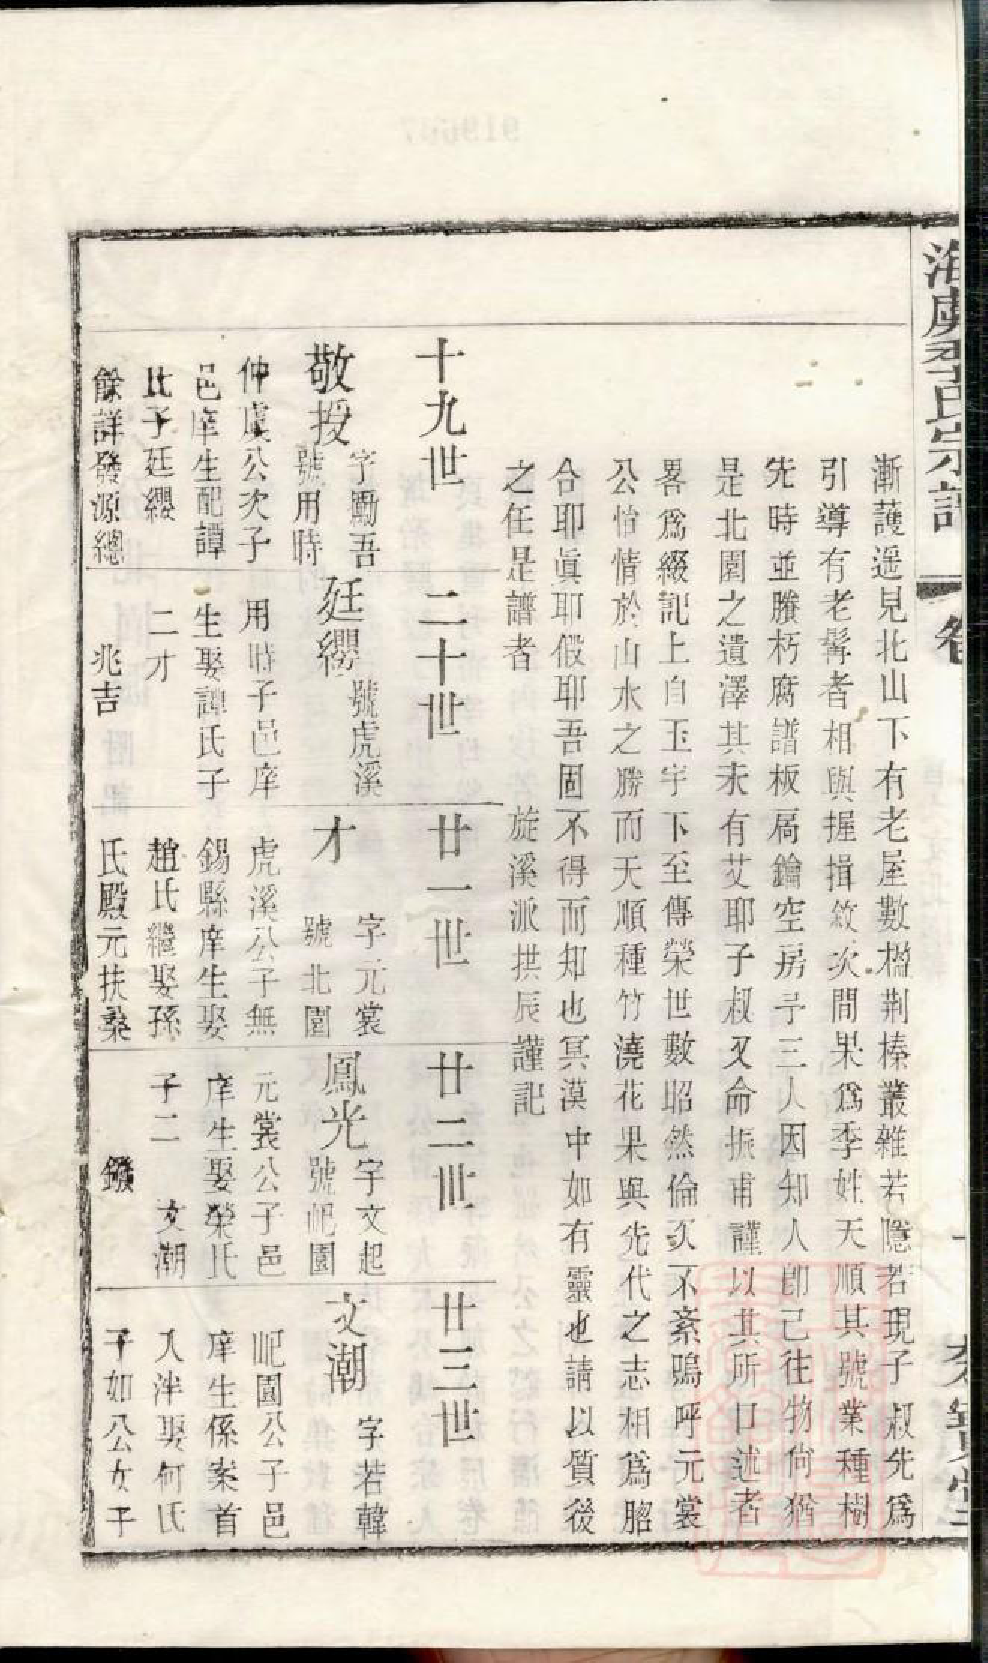 漸護遥見北山下有老屋數楹荆榛叢雜若隱若現子叔先爲
引導有老髯者相與握揖敘次問果爲季姓天順其號業種樹
先時並賸朽腐譜板扃鑰空房子三人因知人卽己往物尙猶
是北園之遺澤其未有艾耶子叔又命振甫謹以其所口述者
畧爲綴記上自玉宇下至傳榮世數昭然倫次不紊嗚呼元裳
公怡情於山水之勝而天順種竹澆花果與先代之志相爲脗
合耶眞耶假耶吾固不得而知也冥漠中如有靈也請以質後
之任是譜者　旋溪派拱辰謹記
十九世
敬授
字勵吾
號用時
仲虞公次子
邑庠生配譚
氏子廷纓
餘詳發源總
二十世
廷纓
號虎溪
用時子邑庠
生娶譚氏子
二才
兆吉
廿一世
才
字元裳
號北園
虎溪公子無
錫縣庠生娶
趙氏繼娶孫
氏殿元扶桑
廿二世
鳳光
字文起
號屺園
元裳公子邑
庠生娶榮氏
子二　文潮
鏺
廿三世
文潮
字若韓
屺園公子邑
庠生係案首
入泮娶何氏
子如公女子